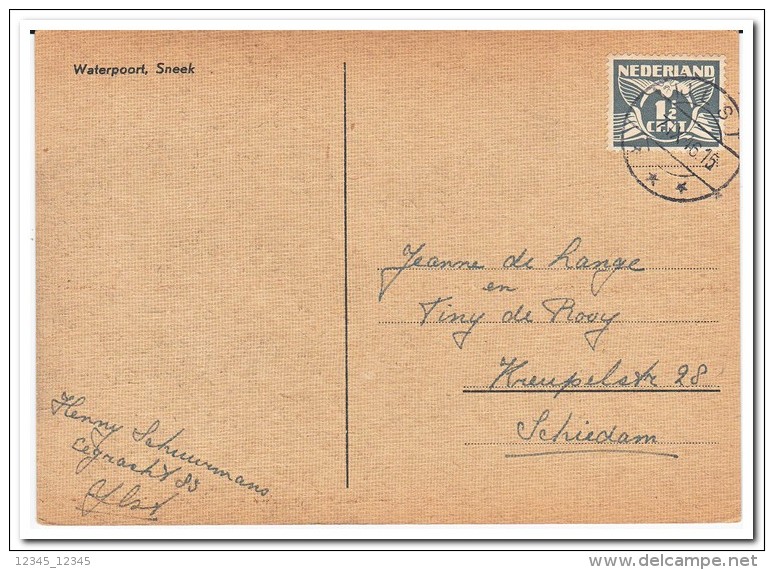 Waterpoort, Sneek
NEDERLAND
1½
CENT
16.15
Jeanne de Lange
en
Tiny de Rooy
Kreupelstr 28
Schiedam
Henny Schuurmans
85
Ylst
12345_12345
delcampe.net